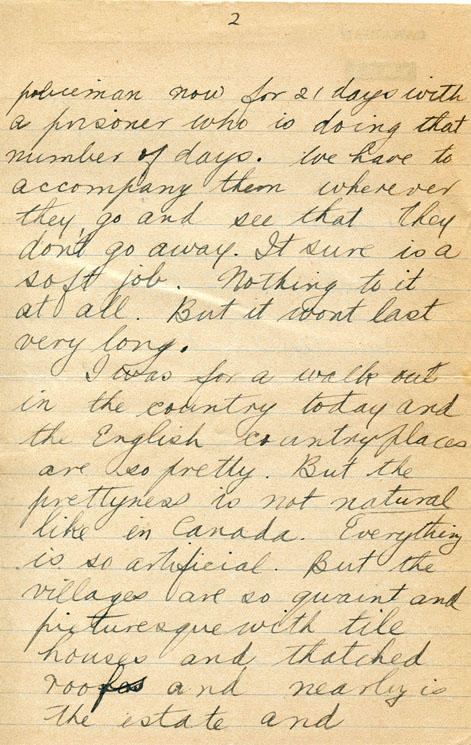 2
policeman now for 21 days with
a prisoner who is doing that
number of days. We have to
accompany them wherever
they go and see that they
dont go away. It sure is a
soft job. Nothing to it
at all. But it wont last
very long.
I was for a walk out
in the country today and
the English country places
are so pretty. But the
prettyness is not natural
like in Canada. Everything
is so artificial. But the
villages are so quaint and
picturesque with tile
houses and thatched
roofs and nearby is
the estate and